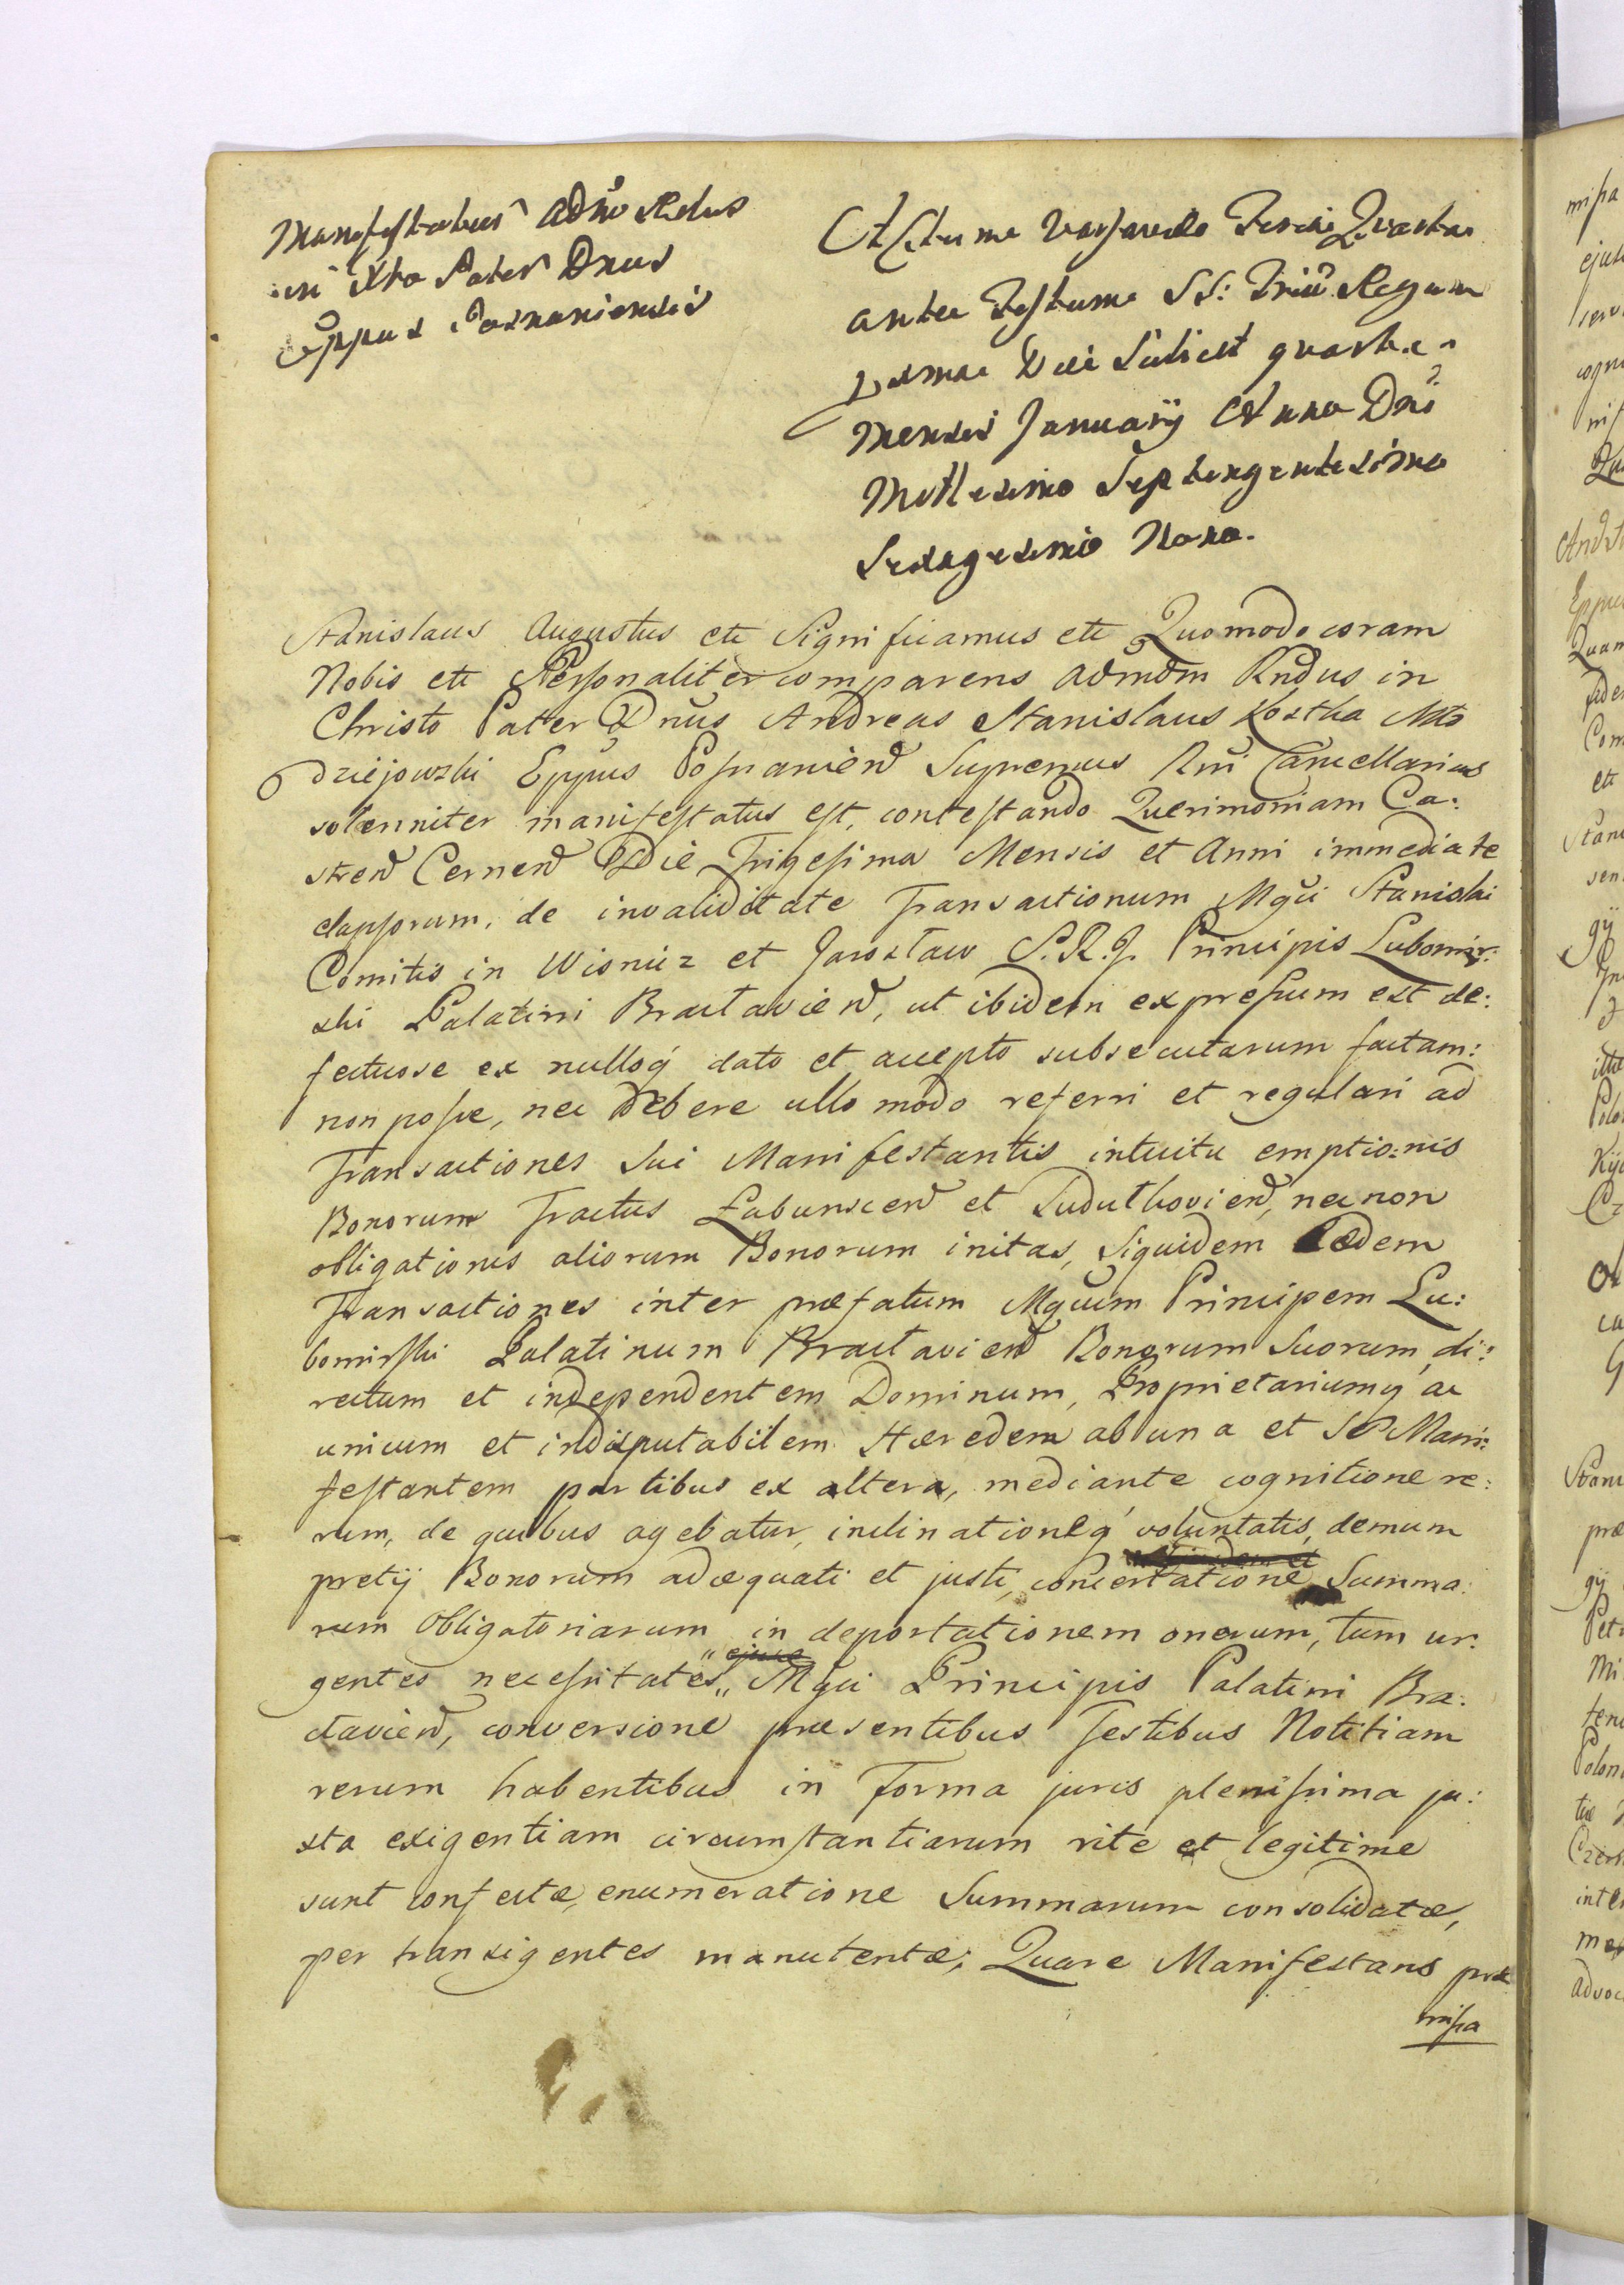 Manifestatur Admo Rdus
in Xto Pater Dnus
Eppus Posnaniensis
Actum Varsaviæ Feria Quarta
ante Festum SS: Triũ Regum
proxima Die Scilicet quarta
Mensis January Anno Dni
Millesimo Septingentesimo
Sexagesimo Nono.
Stanislaus Augustus etc Significamus etc Quomodo coram
Nobis etc Personaliter comparens admdm Rndus in
Christo Pater Dnus Andreas Stanislaus Kostka Mło
dziejowski Eppus Posnanien Supremus Rni Cancellarius
solenniter manifestatus est, contestando Querimoniam Ca:
stren Cernen Die Trigesima Mensis et Anni immediate
elapsorum, de invaliditate Transactionum Mgci Stanislai
Comitis in Wisnicz et Jarosław S.R.J. Principis Lubomir:
ski Palatini Bractavien, ut ibidem expressum est de:
fectuose ex nulloq dato et accepto subsecutarum factam:
non posse, nec debere ullo modo referri et regulari ad
Transactiones Sui Manifestantis intuitu emptio:nis
Bonorum Tractus Łabunscen et Sudutkovien, nec non
obligationis aliorum Bonorum initas, Siquidem Eædem
Transactiones inter præfatum Mgcum Principem Lu:
bomirski Palatinum Bractavien Bonorum Suorum di:
rectum et independentem Dominum, Proprietariumq ac
unicum et indisputabilem Hæredem ab una et Se Mani:
festantem partibus ex altera, mediante cognitione re:
rum, de quibus agebatur, inclinationeq voluntatis, demum
pretij Bonorum adæquati et justi, concertatione Summa:
rum Obligatoriarum in deportationem onerum, tum ur:
gentes necessitates „ejus„ Mgci Principis Palatini Bra:
ctavien, conversione præsentibus Testibus Notitiam
rerum habentibus in Forma juris plenissima ju:
xta exigentiam circumstantiarum rite et legitime
sunt confectæ, enumeratione Summarum consolidatæ,
per transigentes manutentæ; Quare Manifestans præ
missa